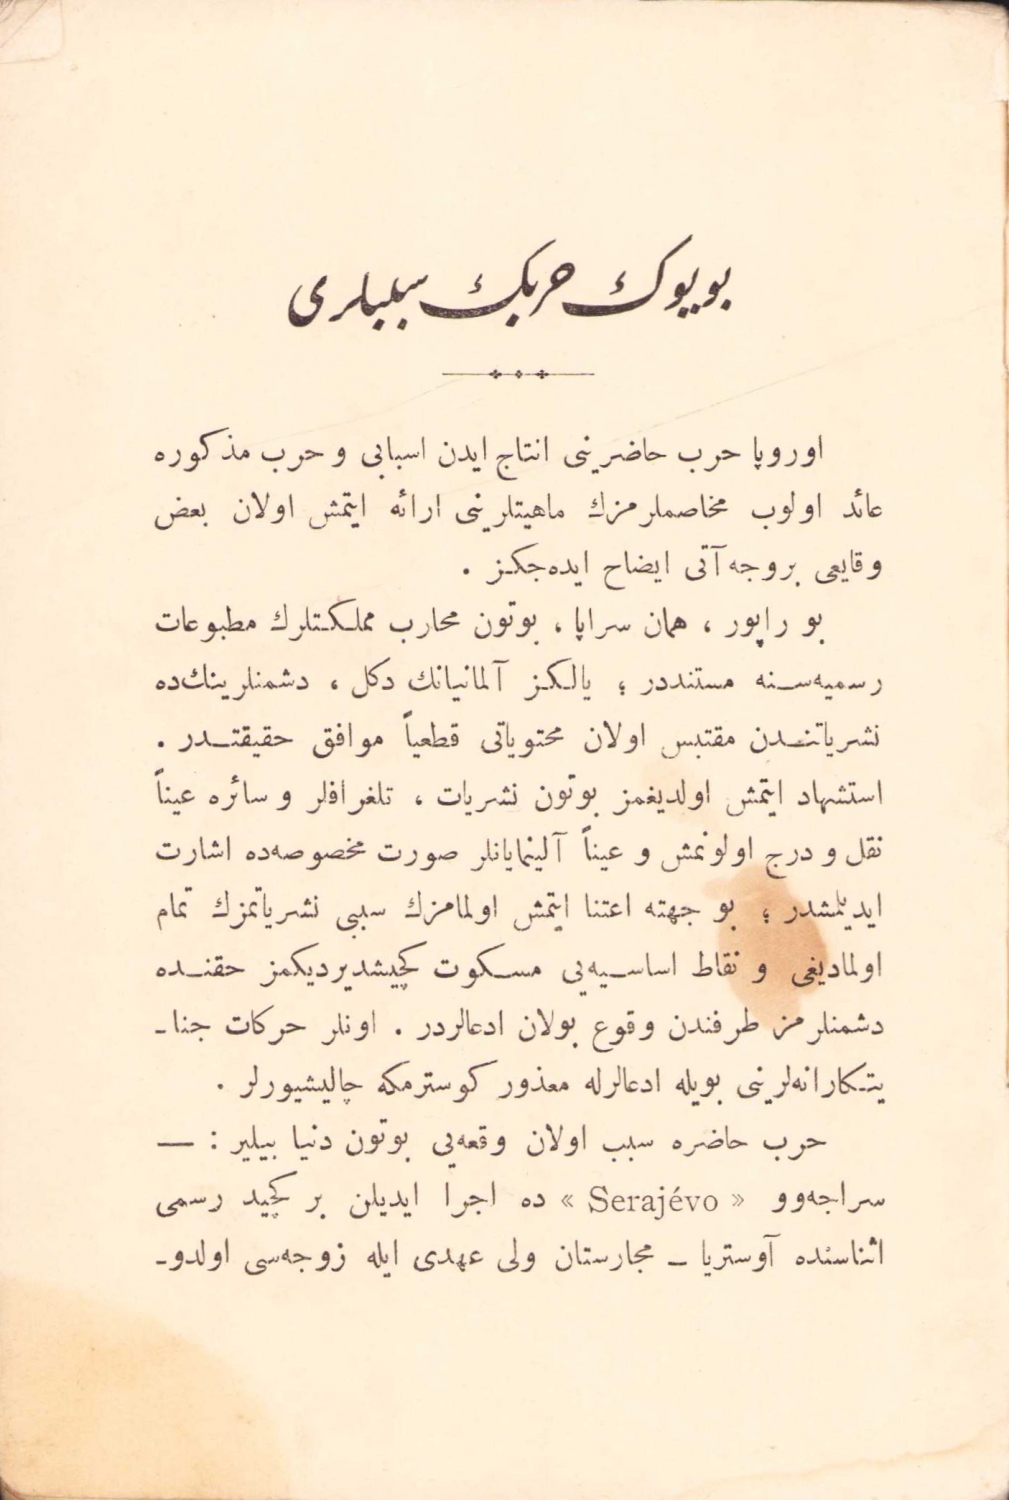 بويوك حربك سببلری
اوروپا حرب حاضرینی انتاج ایدن اسبابی و حرب مذكوره
عائد اولوب مخاصملرمزك ماهیتلرینی ارائه ایتمش اولان بعض
وقایعی بروجه آتی ایضاح ایده‌جكز .
بو راپور ، همان سراپا ، بوتون محارب مملكتلرك مطبوعات
رسمیه‌سنه مستنددر ؛ یالكز آلمانیانك دكل ، دشمنلرینك‌ده
نشریاتندن مقتبس اولان محتویاتی قطعیاً موافق حقیقتدر .
استشهاد ایتمش اولدیغمز بوتون نشریات ، تلغرافلر و سائره عیناً
نقل و درج اولونمش و عیناً آلینمایانلر صورت مخصوصه‌ده اشارت
ایدیلمشدر ؛ بو جهته اعتنا ایتمش اولمامزك سببی نشریاتمزك تمام
اولمادیغی و نقاط اساسیه‌یی مسكوت كچیشدیردیكمز حقنده
دشمنلرمز طرفندن وقوع بولان ادعالردر . اونلر حركات جنا-
یتكارانه‌لرینی بویله ادعالرله معذور كوسترمكه چالیشیورلر .
حرب حاضره سبب اولان وقعه‌یی بوتون دنیا بیلیر : —
سراجه‌وو « Serajévo » ده اجرا ایدیلن بر كچید رسمی
اثناسنده آوستریا - مجارستان ولی عهدی ایله زوجه‌سی اولدو-